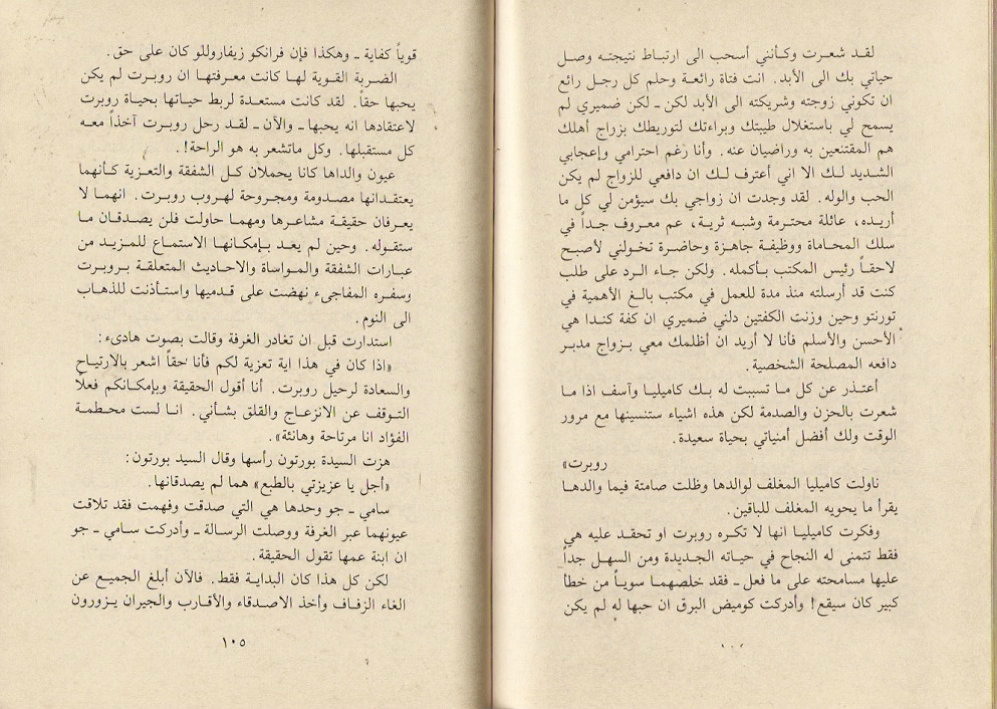 لقد شعرت وكأنني أسحب الى ارتباط نتيجته وصل
حياتي بك الى الأبد. انت فتاة رائعة وحلم كل رجل رائع
ان تكوني زوجته وشريكته الى الأبد لكن ـ لكن ضميري لم
يسمح لي باستغلال طيبتك وبراءتك لتوريطك بزواج أهلك
هم المقتنعين به وراضيان عنه. وأنا رغم احترامي وإعجابي
الشديد لك الا اني أعترف لك ان دافعي للزواج لم يكن
الحب والوله. لقد وجدت ان زواجي بك سيؤمن لي كل ما
أريده، عائلة محترمة وشبه ثرية، عم معروف جداً في
سلك المحاماة ووظيفة جاهزة وحاضرة تخولني لأصبح
لاحقاً رئيس المكتب بأكمله. ولكن جاء الرد على طلب
كنت قد أرسلته منذ مدة للعمل في مكتب بالغ الأهمية في
تورنتو وحين وزنت الكفتين دلني ضميري ان كفة كندا هي
الأحسن والأسلم فأنا لا أريد ان أظلمك معي بزواج مدبر
دافعه المصلحة الشخصية.
أعتذر عن كل ما تسببت له بك كاميليا وآسف اذا ما
شعرت بالحزن والصدمة لكن هذه اشياء ستنسينها مع مرور
الوقت ولك أفضل أمنياتي بحياة سعيدة.
روبرت»
ناولت كاميليا المغلف لوالدها وظلت صامتة فيما والدها
يقرأ ما يحويه المغلف للباقين.
وفكرت كاميليا انها لا تكره روبرت او تحقد عليه هي
فقط تتمنى له النجاح في حياته الجديدة ومن السهل جداً
عليها مسامحته على ما فعل ـ فقد خلصهما سوياً من خطأ
كبير كان سيقع! وأدركت كوميض البرق ان حبها له لم يكن
قوياً كفاية ـ وهكذا فإن فرانكو زيفاروللو كان على حق.
الضربة القوية لها كانت معرفتها ان روبرت لم يكن
يحبها حقاً. لقد كانت مستعدة لربط حياتها بحياة روبرت
لاعتقادها انه يحبها ـ والآن ـ لقد رحل روبرت آخذاً معه
كل مستقبلها. وكل ماتشعر به هو الراحة!.
عيون والداها كانا يحملان كل الشفقة والتعزية كأنهما
يعتقدانها مصدومة ومجروحة لهروب روبرت. انهما لا
يعرفان حقيقة مشاعرها ومهما حاولت فلن يصدقان ما
ستقوله. وحين لم يعد بإمكانها الاستماع للمزيد من
عبارات الشفقة والمواساة والاحاديث المتعلقة بروبرت
وسفره المفاجىء نهضت على قدميها واستأذنت للذهاب
الى النوم.
استدارت قبل ان تغادر الغرفة وقالت بصوت هادىء:
«اذا كان في هذا اية تعزية لكم فأنا حقاً اشعر بالارتياح
والسعادة لرحيل روبرت. أنا أقول الحقيقة وبإمكانكم فعلاً
التوقف عن الانزعاج والقلق بشأني. انا لست محطمة
الفؤاد انا مرتاحة وهانئة».
هزت السيدة بورتون رأسها وقال السيد بورتون:
«أجل يا عزيزتي بالطبع» هما لم يصدقانها.
سامي ـ جو وحدها هي التي صدقت وفهمت فقد تلاقت
عيونهما عبر الغرفة ووصلت الرسالة ـ وأدركت سامي ـ جو
ان ابنة عمها تقول الحقيقة.
لكن كل هذا كان البداية فقط. فالآن أبلغ الجميع عن
الغاء الزفاف وأخذ الاصدقاء والأقارب والجيران يزورون
١٠٥